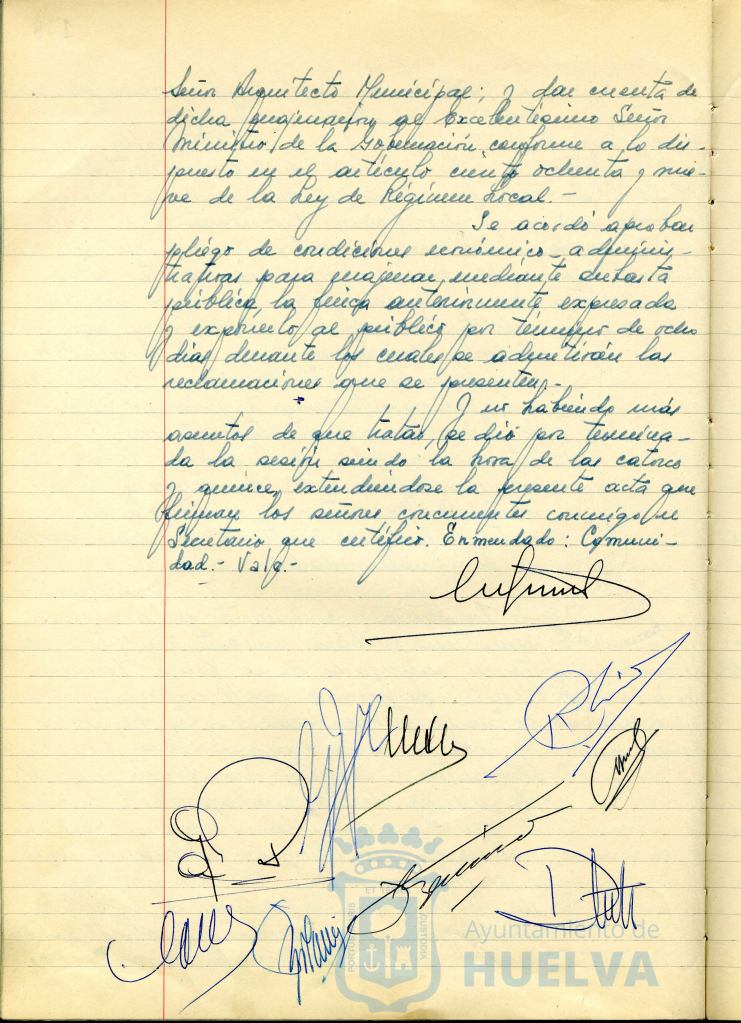 Señor Arquitecto Municipal; y dar cuenta de
dicha enajenación al Excelentísimo Señor
Ministro de la Gobernación, conforme a lo dis-
puesto en el artículo ciento ochenta y nue-
ve de la Ley de Régimen Local.-
Se acordó aprobar
pliego de condiciones económico-adminis-
trativas para enajenar, mediante subasta
pública, la finca anteriormente expresada
y exponerlo al público por término de ocho
días, durante los cuales se admitirán las
reclamaciones que se presenten.-
Y no habiendo más
asuntos de que tratar, se dió por termina-
da la sesión siendo la hora de las catorce
y quince, extendiéndose la presente acta que
firman los señores concurrentes conmigo el
Secretario que certifico. Enmendado: Comuni-
dad.- Vale.-
PORTUS MARIS ET TERRAE CUSTODIA
Ayuntamiento de
HUELVA